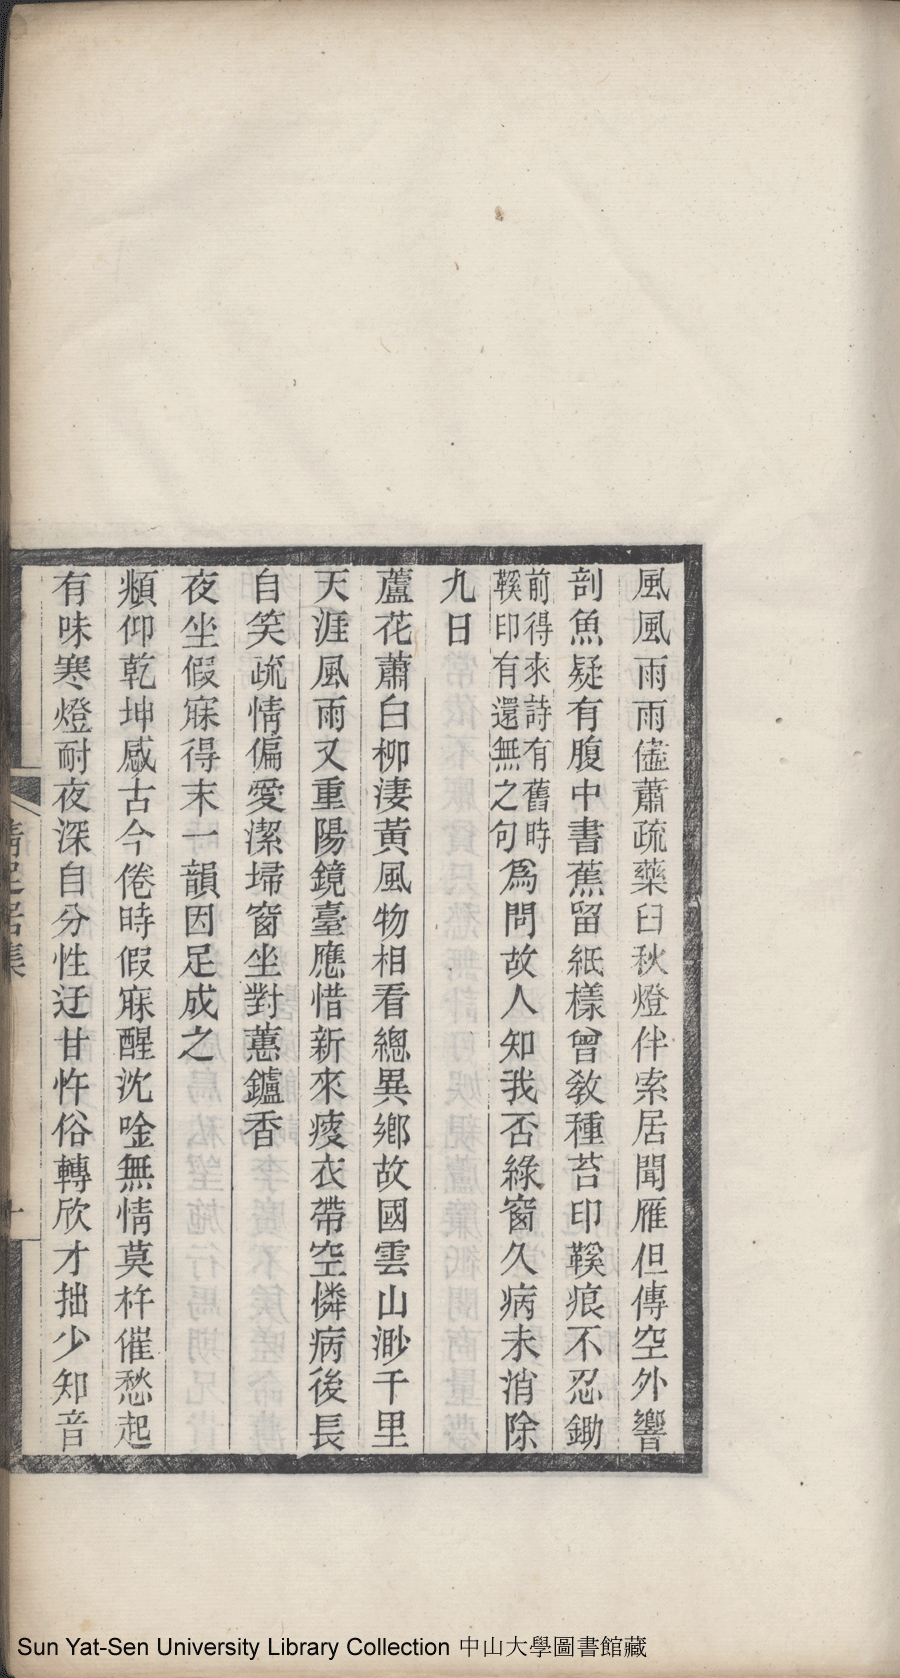 風風雨雨儘蕭疏藥臼秋燈伴索居聞雁但傳空外響
剖魚疑有腹中書蕉留紙樣曾敎種苔印鞵痕不忍鋤
前得來詩有舊時
鞵印有還無之句
爲問故人知我否綠窗久病未消除
九日
蘆花蕭白柳淒黃風物相看總異鄉故國雲山渺千里
天涯風雨又重陽鏡臺應惜新來瘦衣帶空憐病後長
自笑疏情偏愛潔埽窗坐對蕙鑪香
夜坐假寐得末一韻因足成之
頫仰乾坤感古今倦時假寐醒沈唫無情莫杵催愁起
有味寒燈耐夜深自分性迂甘忤俗轉欣才拙少知音
清足居集
十
Sun Yat-Sen University Library Collection 中山大學圖書館藏